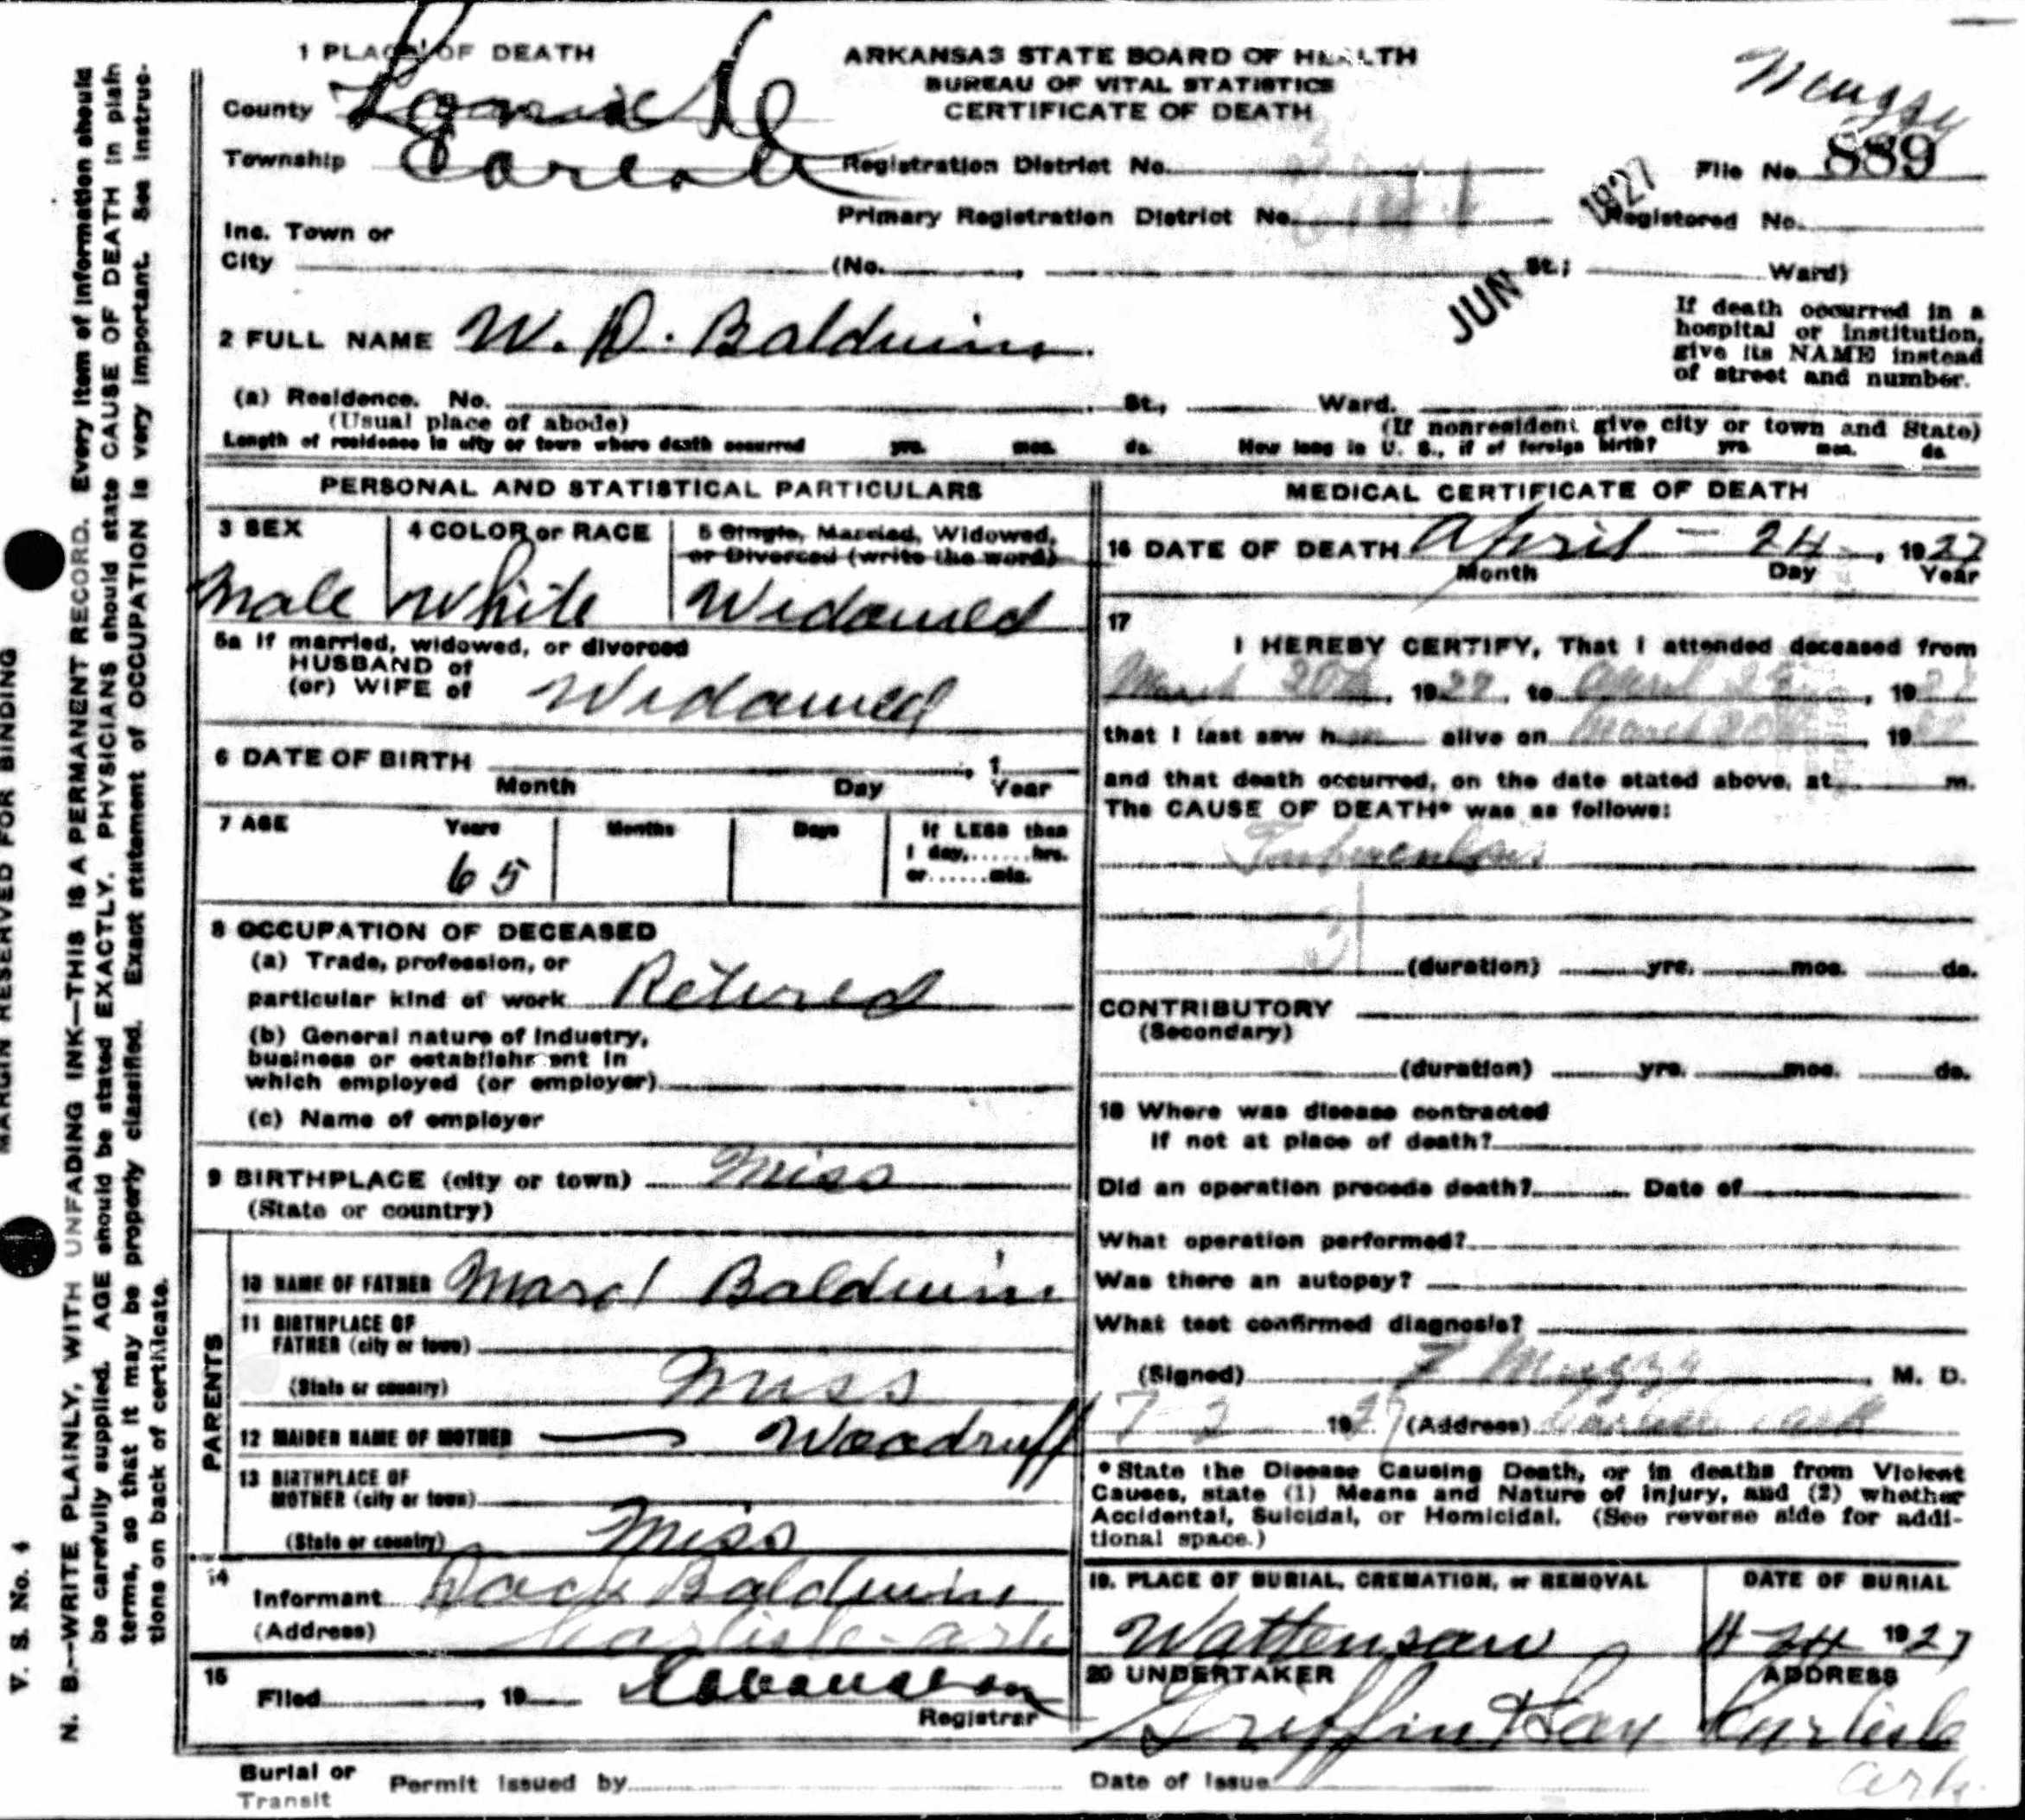 1 PLACE OF DEATH
ARKANSAS STATE BOARD OF HEALTH
BUREAU OF VITAL STATISTICS
CERTIFICATE OF DEATH
County Lonoke
Township
Registration District No.
File No. 889
Primary Registration District No.
1927
Registered No.
Inc. Town or
City (No. , St.; Ward)
JUN
If death occurred in a
hospital or institution,
give its NAME instead
of street and number.
2 FULL NAME W. D. Baldwin
(a) Residence. No. St., Ward.
(Usual place of abode) (If nonresident give city or town and State)
Length of residence in city or town where death occurred yrs. mos. ds. How long in U. S., if of foreign birth? yrs. mos. ds.
PERSONAL AND STATISTICAL PARTICULARS
3 SEX
Male
4 COLOR or RACE
White
5 Single, Married, Widowed,
or Divorced (write the word)
Widowed
5a If married, widowed, or divorced
HUSBAND of
(or) WIFE of Widowed
6 DATE OF BIRTH , 1
Month Day Year
7 AGE Years Months Days If LESS than
1 day, ...... hrs.
or ...... min.
65
8 OCCUPATION OF DECEASED
(a) Trade, profession, or
particular kind of work Retired
(b) General nature of Industry,
business or establishment in
which employed (or employer)
(c) Name of employer
9 BIRTHPLACE (city or town) Miss
(State or country)
PARENTS
10 NAME OF FATHER Baldwin
11 BIRTHPLACE OF
FATHER (city or town)
(State or country) Miss
12 MAIDEN NAME OF MOTHER — Woodruff
13 BIRTHPLACE OF
MOTHER (city or town)
(State or country) Miss
14
Informant Baldwin
(Address) Carlisle - Ark
15
Filed , 19
Registrar
MEDICAL CERTIFICATE OF DEATH
16 DATE OF DEATH April - 24 , 1927
Month Day Year
17
I HEREBY CERTIFY, That I attended deceased from
March 20th, 1927, to April , 1927
that I last saw him alive on March 20th , 19
and that death occurred, on the date stated above, at m.
The CAUSE OF DEATH* was as follows:
Tuberculosis
31
(duration) yrs. mos. ds.
CONTRIBUTORY
(Secondary)
(duration) yrs. mos. ds.
18 Where was disease contracted
If not at place of death?
Did an operation precede death? Date of
What operation performed?
Was there an autopsy?
What test confirmed diagnosis?
(Signed) F Muggy , M. D.
7 2 1927 (Address) Carlisle Ark
*State the Disease Causing Death, or in deaths from Violent
Causes, state (1) Means and Nature of Injury, and (2) whether
Accidental, Suicidal, or Homicidal. (See reverse side for addi-
tional space.)
19. PLACE OF BURIAL, CREMATION, or REMOVAL
Wattensaw
DATE OF BURIAL
4-24 1927
20 UNDERTAKER
Griffin
ADDRESS
Carlisle
Ark.
Burial or
Transit Permit issued by
Date of Issue
MARGIN RESERVED FOR BINDING
V. S. No. 4
N. B.—WRITE PLAINLY, WITH UNFADING INK—THIS IS A PERMANENT RECORD. Every item of information should
be carefully supplied. AGE should be stated EXACTLY. PHYSICIANS should state CAUSE OF DEATH in plain
terms, so that it may be properly classified. Exact statement of OCCUPATION is very important. See instruc-
tions on back of certificate.